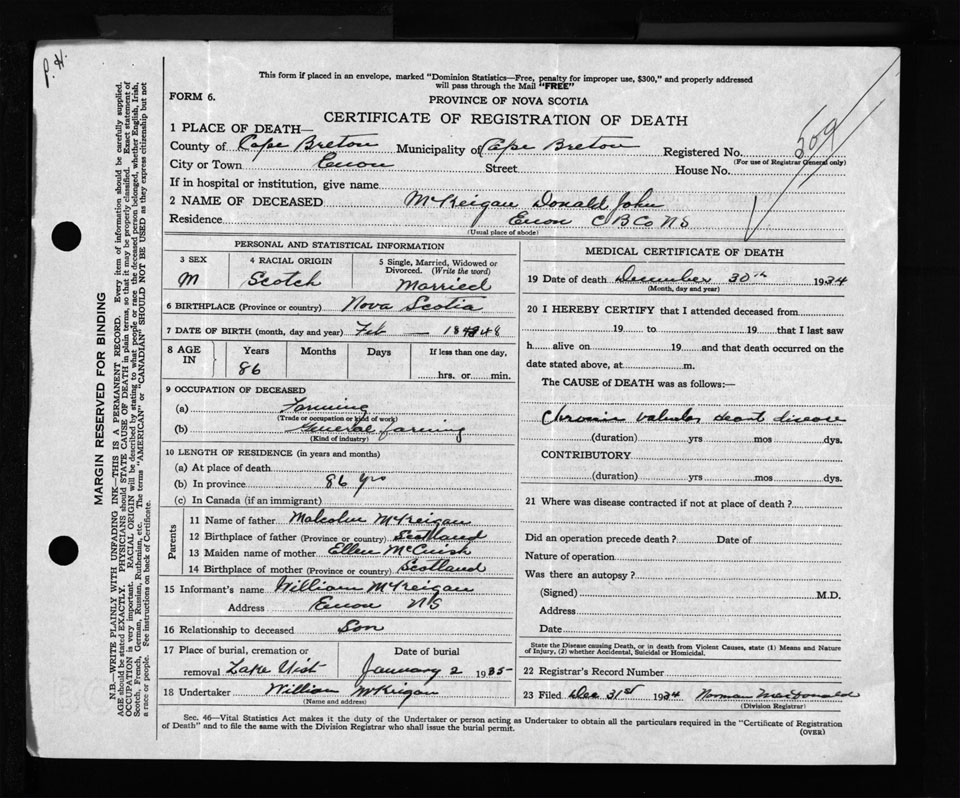 P. H.
This form if placed in an envelope, marked "Dominion Statistics—Free, penalty for improper use, $300," and properly addressed
will pass through the Mail "FREE"
FORM 6.
PROVINCE OF NOVA SCOTIA
CERTIFICATE OF REGISTRATION OF DEATH
509
1 PLACE OF DEATH—
County of Cape Breton Municipality of Cape Breton Registered No.
(For use of Registrar General only)
City or Town Enon Street House No.
If in hospital or institution, give name
2 NAME OF DECEASED McKeigan Donald John
Residence Enon C B Co N S
(Usual place of abode)
PERSONAL AND STATISTICAL INFORMATION
3 SEX 4 RACIAL ORIGIN 5 Single, Married, Widowed or
Divorced. (Write the word)
M Scotch Married
6 BIRTHPLACE (Province or country) Nova Scotia
7 DATE OF BIRTH (month, day and year) Feb — 1848
8 AGE IN Years Months Days If less than one day,
86 hrs. or min.
9 OCCUPATION OF DECEASED
(a) Farming
(Trade or occupation or kind of work)
(b) General farming
(Kind of industry)
10 LENGTH OF RESIDENCE (in years and months)
(a) At place of death
(b) In province 86 yrs
(c) In Canada (if an immigrant)
Parents
11 Name of father Malcolm McKeigan
12 Birthplace of father (Province or country) Scotland
13 Maiden name of mother Ellen McCuish
14 Birthplace of mother (Province or country) Scotland
15 Informant's name William McKeigan
Address Enon NS
16 Relationship to deceased Son
17 Place of burial, cremation or Date of burial
removal Lake Uist January 2 1935
18 Undertaker William McKeigan
(Name and address)
MEDICAL CERTIFICATE OF DEATH
19 Date of death December 30th 1934
(Month, day and year)
20 I HEREBY CERTIFY that I attended deceased from
19 to 19 that I last saw
h alive on 19 and that death occurred on the
date stated above, at m.
The CAUSE of DEATH was as follows:—
Chronic valvular heart disease
(duration) yrs mos dys.
CONTRIBUTORY
(duration) yrs mos dys.
21 Where was disease contracted if not at place of death?
Did an operation precede death? Date of
Nature of operation
Was there an autopsy?
(Signed) M.D.
Address
Date
State the Disease causing Death, or in death from Violent Causes, state (1) Means and Nature
of Injury, (2) whether Accidental, Suicidal or Homicidal.
22 Registrar's Record Number
23 Filed Dec 31st 1934 Norman MacDonald
(Division Registrar)
Sec. 46—Vital Statistics Act makes it the duty of the Undertaker or person acting as Undertaker to obtain all the particulars required in the "Certificate of Registration
of Death" and to file the same with the Division Registrar who shall issue the burial permit.
(OVER)
MARGIN RESERVED FOR BINDING
N.B.—WRITE PLAINLY WITH UNFADING INK—THIS IS A PERMANENT RECORD. Every item of information should be carefully supplied.
AGE should be stated EXACTLY. PHYSICIANS should STATE CAUSE OF DEATH in plain terms, so that it may be properly classified. Exact statement of
OCCUPATION is very important. RACIAL ORIGIN will be described by stating to what people or race the deceased person belonged, whether English, Irish,
Scotch, French, German, Russian, Ruthenian, etc. The terms "AMERICAN" or "CANADIAN" SHOULD NOT BE USED as they express citizenship but not
a race or people. See instructions on back of Certificate.